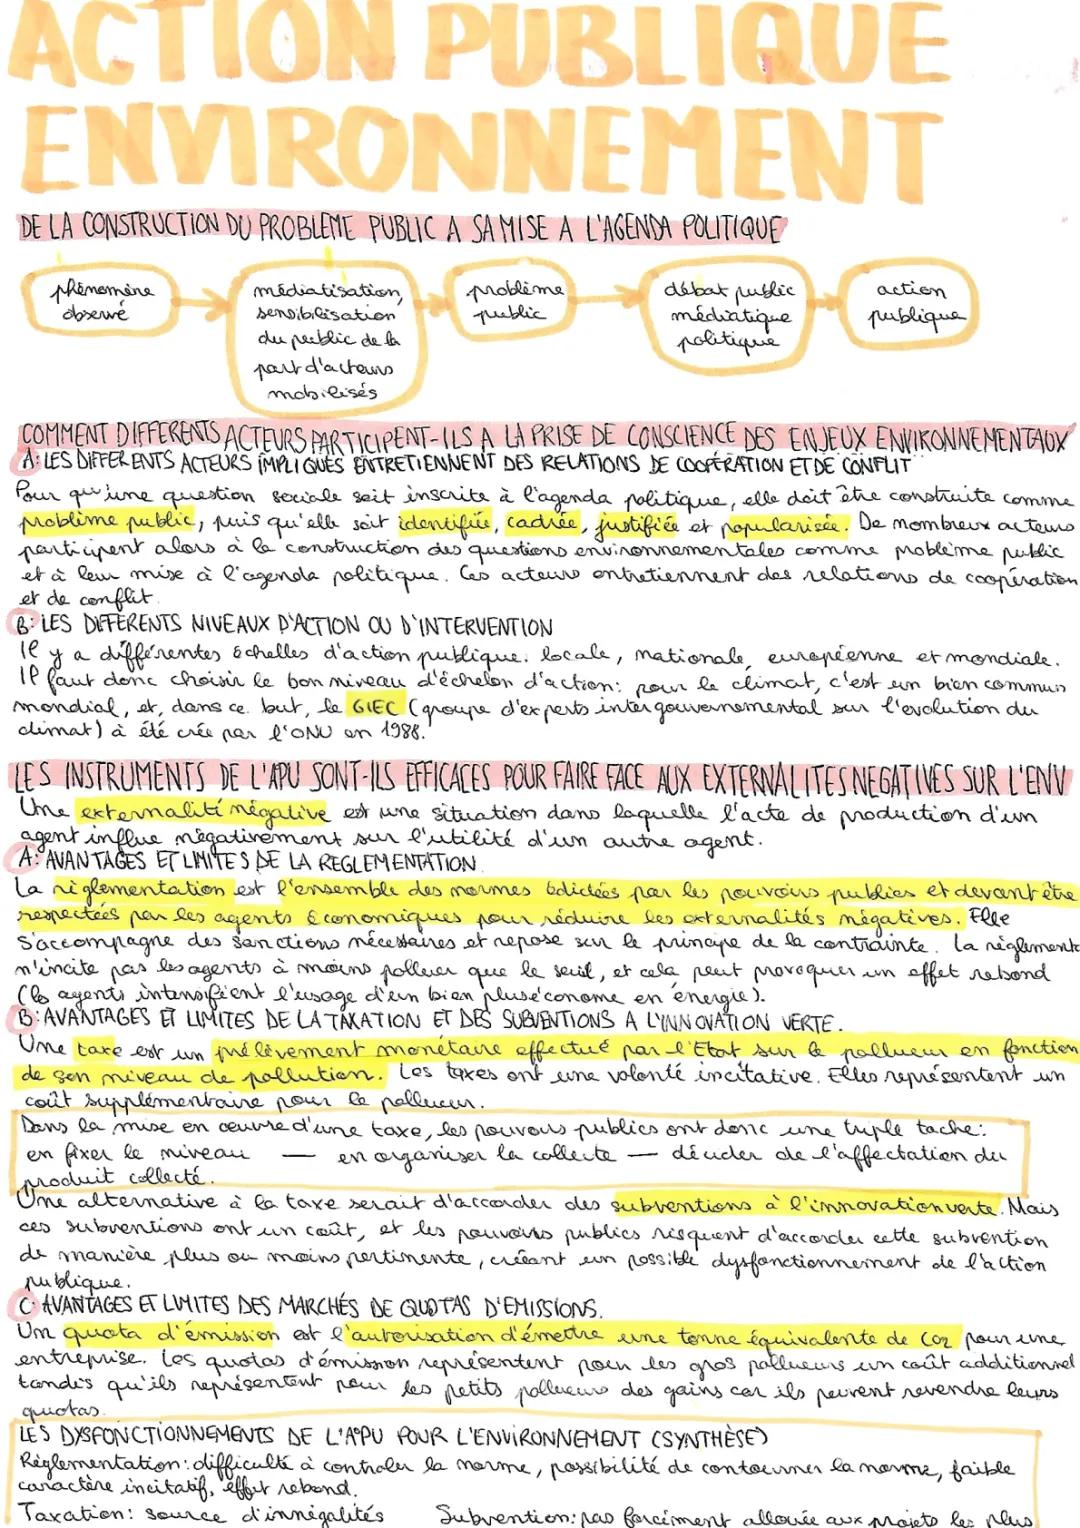 ACTION PUBLIQUE
ENVIRONNEMENT
DE LA CONSTRUCTION DU PROBLEME PUBLIC A SA MISE A L'AGENDA POLITIQUE
phénomène
observé
médiatisation,
sensibilisation
du public de la
part d'acteurs
mobilisés
problème
public
débat public
médiatique
politique
action
publique
COMMENT DIFFERENTS ACTEURS PARTICIPENT-ILS A LA PRISE DE CONSCIENCE DES ENJEUX ENVIRONNEMENTAUX
A: LES DIFFERENTS ACTEURS IMPLIQUES ENTRETIENNENT DES RELATIONS DE COOPÉRATION ET DE CONFLIT
Pour qu'une question sociale soit inscrite à l'agenda politique, elle doit être construite comme
problème public, puis qu'elle soit identifiée, cadrée, justifiée et popularisée. De nombreux acteurs
participent alors à la construction des questions environnementales comme problème public
et à leur mise à l'agenda politique. Ces acteurs entretiennent des relations de coopération
et de conflit.
B: LES DIFFERENTS NIVEAUX D'ACTION OU D'INTERVENTION
Il y a différentes échelles d'action publique: locale, nationale, européenne et mondiale.
Il faut donc choisir le bon niveau d'échelon d'action: pour le climat, c'est un bien commun
mondial, et, dans ce but, le GIEC (groupe d'experts intergouvernemental sur l'evolution du
climat) à été crée par l'ONU en 1988.
LES INSTRUMENTS DE L'APU SONT-ILS EFFICACES POUR FAIRE FACE AUX EXTERNALITES NEGATIVES SUR L'ENV
Une externalité négative est une situation dans laquelle l'acte de production d'un
agent influe négativement sur l'utilité d'un autre agent.
A: AVANTAGES ET LIMITES DE LA REGLEMENTATION
La réglementation est l'ensemble des normes édictées par les pouvoirs publics et devant être
respectées par les agents économiques pour réduire les externalités négatives. Elle
s'accompagne des sanctions nécessaires et repose sur le principe de la contrainte. La réglement
n'incite pas les agents à moins polluer que le seuil, et cela peut provoquer un effet rebond
(les agents intensifient l'usage d'un bien plus économe en énergie).
B: AVANTAGES ET LIMITES DE LA TAXATION ET DES SUBVENTIONS A L'INNOVATION VERTE.
Une taxe est un prélèvement monétaire effectué par l'Etat sur le pollueur en fonction
de son niveau de pollution. Les taxes ont une volonté incitative. Elles représentent un
coût supplémentaire pour le pollueur.
Dans la mise en œuvre d'une taxe, les pouvoirs publics ont donc une triple tache:
en fixer le niveau — en organiser la collecte — décider de l'affectation du
produit collecté.
Une alternative à la taxe serait d'accorder des subventions à l'innovation verte. Mais
ces subventions ont un coût, et les pouvoirs publics risquent d'accorder cette subvention
de manière plus ou moins pertinente, créant un possible dysfonctionnement de l'action
publique.
C: AVANTAGES ET LIMITES DES MARCHÉS DE QUOTAS D'EMISSIONS.
Un quota d'émission est l'autorisation d'émettre une tonne équivalente de CO2 pour une
entreprise. Les quotas d'émission représentent pour les gros pollueurs un coût additionnel
tandis qu'ils représentent pour les petits pollueurs des gains car ils peuvent revendre leurs
quotas.
LES DYSFONCTIONNEMENTS DE L'APU POUR L'ENVIRONNEMENT (SYNTHÈSE)
Réglementation: difficulté à controler la norme, possibilité de contourner la norme, faible
caractère incitatif, effet rebond.
Taxation: source d'innégalités Subvention: pas forcément allouée aux projets les plus